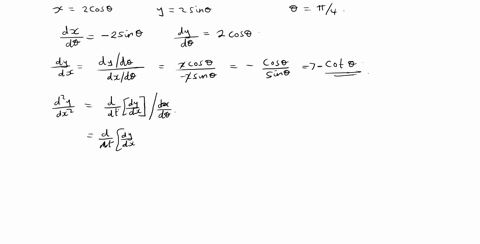 x = 2cosθ    y = 2sinθ    θ = π/4.
dx/dθ = -2sinθ    dy/dθ = 2cosθ.
dy/dx = (dy/dθ)/(dx/dθ) = 2cosθ/-2sinθ = - cosθ/sinθ => -Cot θ
d²y/dx² = d/dt [dy/dx] / dx/dθ
= d/dt [dy/dx